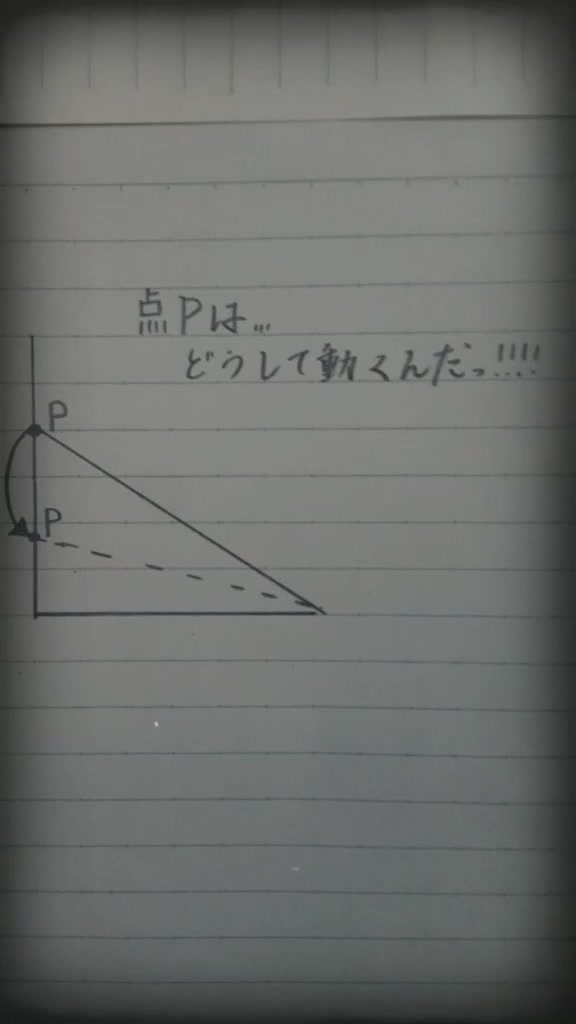 点Pは…
どうして動くんだっ!!!!
P
P